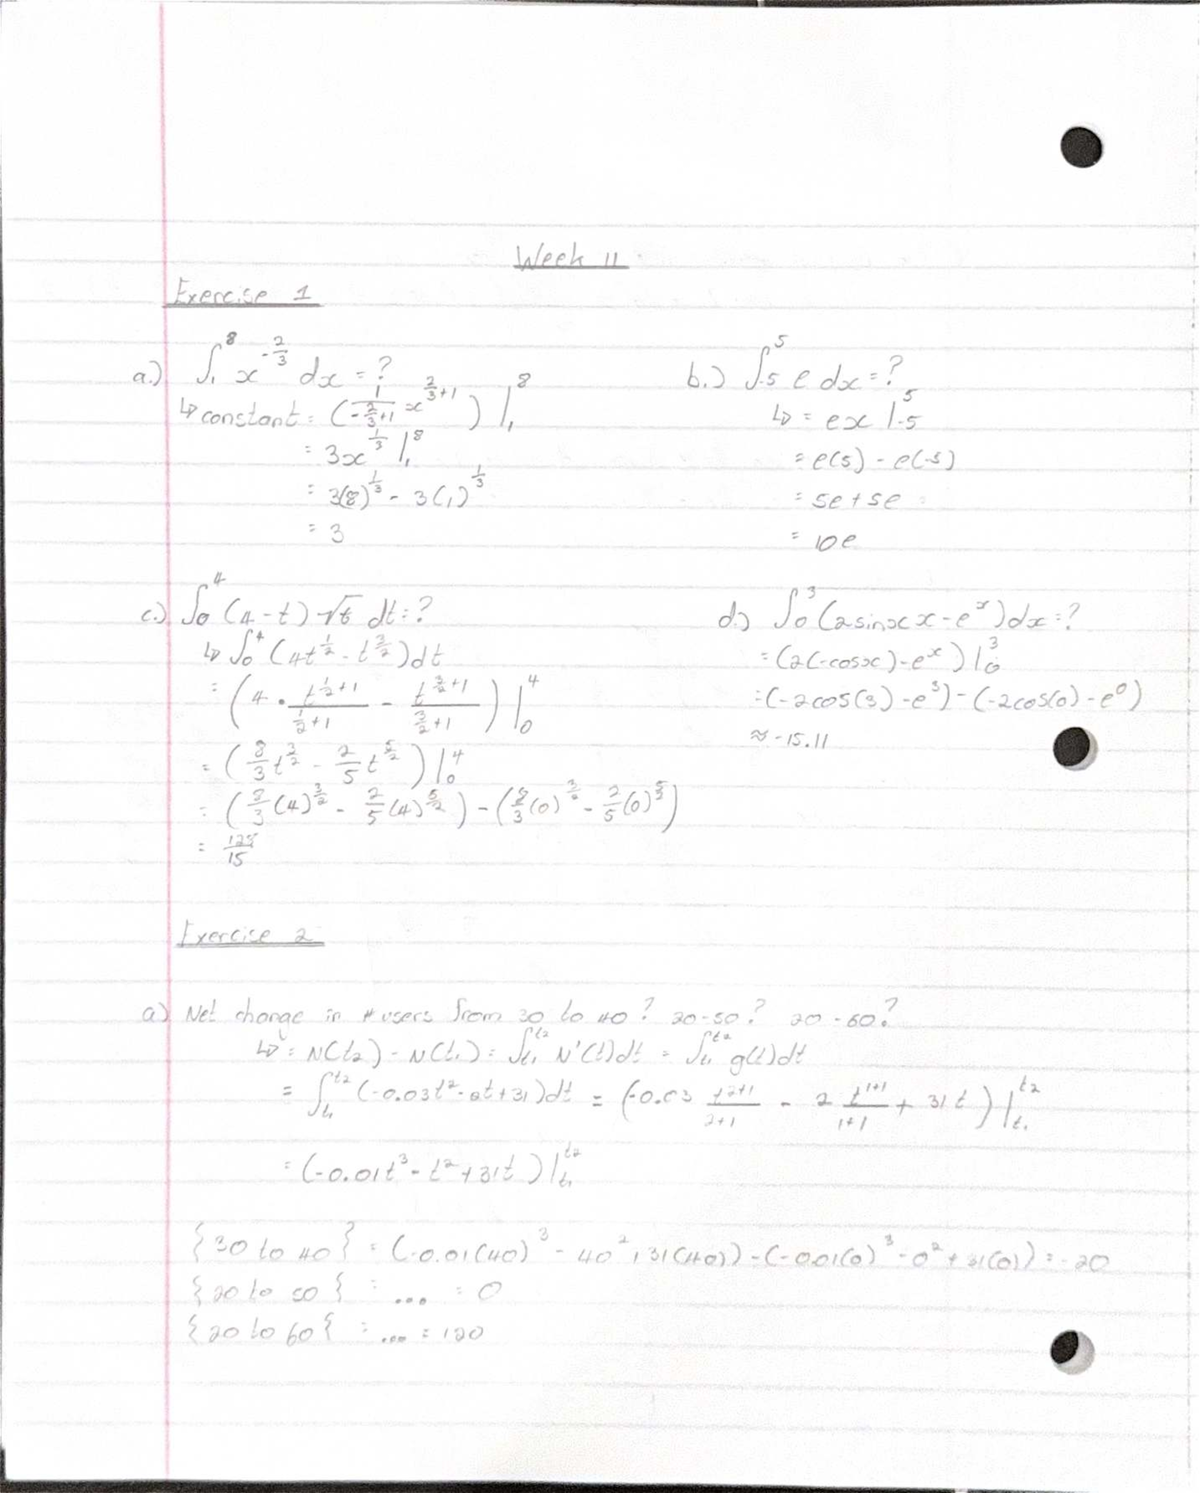 Week 11
Exercise 1
a.) ∫₁⁸ x^(-2/3) dx = ?
↳ constant = (1/(-2/3+1) x^(2/3+1)) |₁⁸
= 3x^(1/3) |₁⁸
= 3(8)^(1/3) - 3(1)^(1/3)
= 3
b.) ∫₋₅⁵ e dx = ?
↳ = ex |₋₅⁵
= e(5) - e(-5)
= 5e + 5e
= 10e
c.) ∫₀⁴ (4-t) √t dt = ?
↳ ∫₀⁴ (4t^(1/2) - t^(3/2)) dt
= (4 · t^(1/2+1)/(1/2+1) - t^(3/2+1)/(3/2+1)) |₀⁴
= (8/3 t^(3/2) - 2/5 t^(5/2)) |₀⁴
= (8/3 (4)^(3/2) - 2/5 (4)^(5/2)) - (8/3 (0)^(3/2) - 2/5 (0)^(5/2))
= 128/15
d.) ∫₀³ (2sinx x - e^x) dx = ?
= (2(-cosx) - e^x) |₀³
= (-2cos(3) - e³) - (-2cos(0) - e⁰)
≈ -15.11
Exercise 2
a) Net change in # users from 30 to 40? 20-50? 20-60?
↳ = N(t₂) - N(t₁) = ∫ₜ₁ᵗ² N'(t)dt = ∫ₜ₁ᵗ² g(t)dt
= ∫ₜ₁ᵗ² (-0.03t² - 2t + 31)dt = (-0.03 t^(2+1)/(2+1) - 2 t^(1+1)/(1+1) + 31t) |ₜ₁ᵗ²
= (-0.01t³ - t² + 31t) |ₜ₁ᵗ²
{30 to 40} = (-0.01(40)³ - 40² + 31(40)) - (-0.01(0)³ - 0² + 31(0)) = -20
{20 to 50} = ... = 0
{20 to 60} = ... = 120